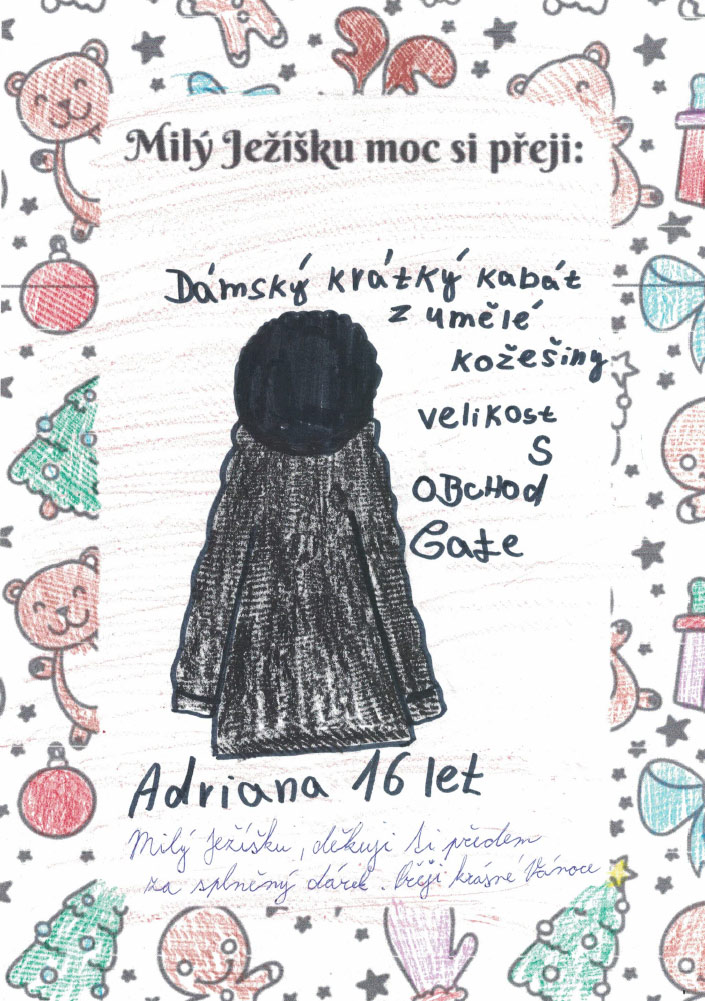 Milý Ježíšku moc si přeji:
Dámský krátký kabát
z umělé
kožešiny
velikost
S
OBCHOD
Gate
Adriana 16 let
Milý Ježíšku, děkuji Ti předem
za splněný dárek. Přeji krásné Vánoce